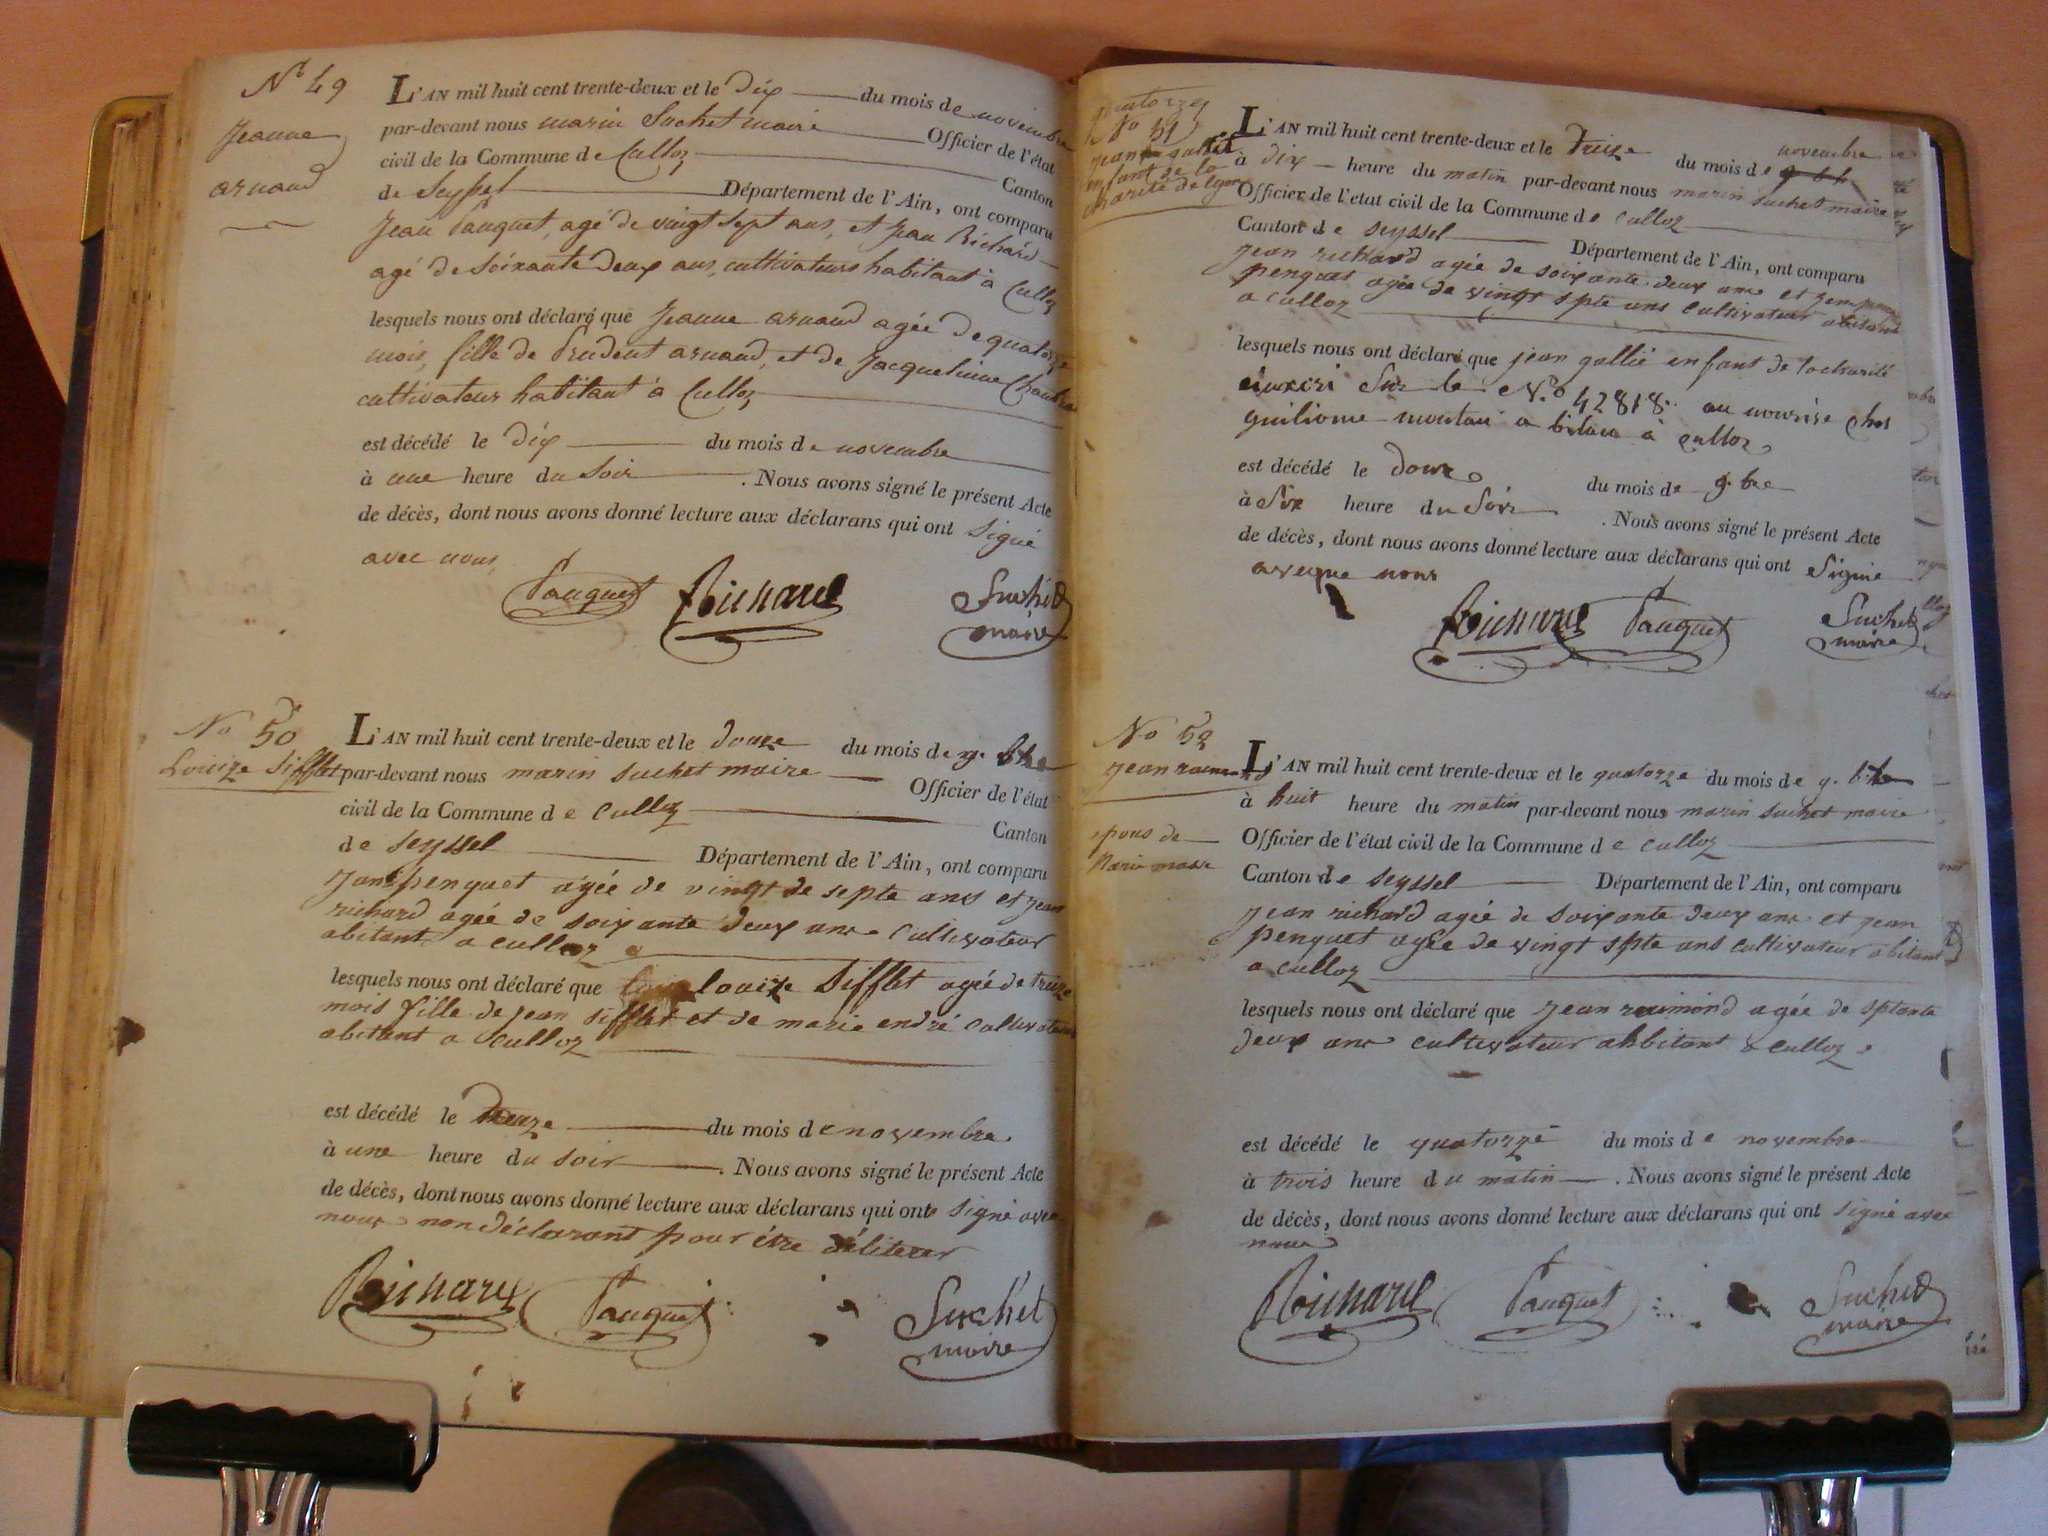 Nº 49
Jeanne
arnaud
L'AN mil huit cent trente-deux et le Dix du mois de novembre
par-devant nous marin Suchet maire Officier de l'état
civil de la Commune de Culloz Canton
de Seyssel Département de l'Ain, ont comparu
Jean Pauquet, agé de vingt sept ans, et Jean Richard
agé de Soixante Deux ans, cultivateurs habitant à Culloz
lesquels nous ont déclaré que Jeanne arnaud agée de quatorze
mois, fille de Prudent arnaud, et de Jacqueline
cultivateur habitant à Culloz
est décédé le Dix du mois de novembre
à une heure du Soir. Nous avons signé le présent Acte
de décès, dont nous avons donné lecture aux déclarans qui ont Signé
avec nous,
Pauquet Richard Suchet
maire
No 50
Louize Sifflet
L'AN mil huit cent trente-deux et le douze du mois de 9. bre
par-devant nous marin suchet maire Officier de l'état
civil de la Commune de culloz Canton
de seyssel Département de l'Ain, ont comparu
Jean penquet agée de vingt de septe ans et jean
richard agée de soixante deux ans cultivateur
abitant a culloz
lesquels nous ont déclaré que louize Sifflet agée de treize
mois fille de jean sifflet et de marie endré cultivateur
abitant a culloz
est décédé le douze du mois de novembre
à une heure du soir. Nous avons signé le présent Acte
de décès, dont nous avons donné lecture aux déclarans qui ont signé avec
nous non déclarant pour être
Richard Pauquet Suchet
maire
quatorze
No 51
jean
enfant de la
charité de lyon
L'AN mil huit cent trente-deux et le Treize du mois de novembre
à dix heure du matin par-devant nous marin suchet maire
Officier de l'etat civil de la Commune de culloz
Canton de seyssel Département de l'Ain, ont comparu
jean richard agée de soixante deux ans et jean
penquet agée de vingt spte ans cultivateur abitant
a culloz
lesquels nous ont déclaré que jean gallié enfant de la charité
Sur le N.o 42818. au nourise ches
guiliome a à culloz
est décédé le douze du mois de 9. bre
à Six heure du Soir. Nous avons signé le présent Acte
de décès, dont nous avons donné lecture aux déclarans qui ont Signie
aveque nous
Richard Pauquet Suchet
maire
No 52
jean
epous de
Marie
L'AN mil huit cent trente-deux et le quatorze du mois de 9. bre
à huit heure du matin par-devant nous marin suchet maire
Officier de l'état civil de la Commune de culloz
Canton de seyssel Département de l'Ain, ont comparu
jean richard agée de soixante deux ans et jean
penquet agée de vingt spte ans cultivateur abitant
a culloz
lesquels nous ont déclaré que jean raimond agée de sptante
deux ans cultivateur ahbitant a culloz
est décédé le quatorze du mois de novembre
à trois heure du matin. Nous avons signé le présent Acte
de décès, dont nous avons donné lecture aux déclarans qui ont signé avec
nous
Richard Pauquet Suchet
maire